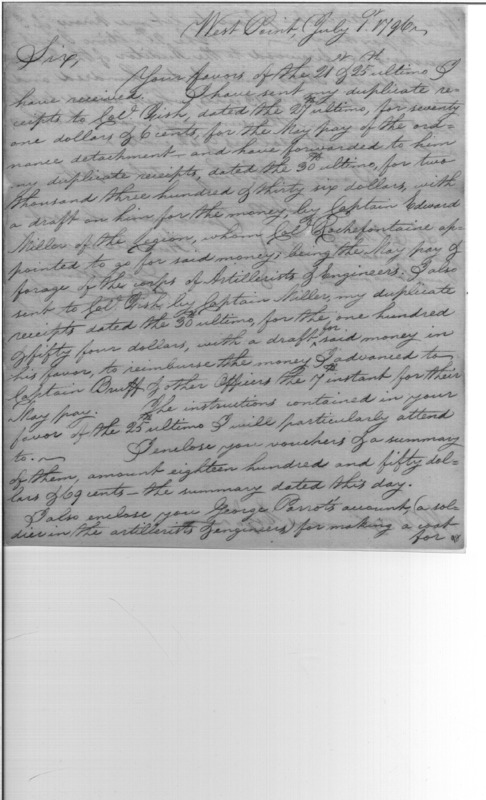 West Point July 1st 1796.
Sir,
Your favors of the 21st & 25th ultimo I
have received. I have sent my duplicate re-
ceipts to Colo. Fish, dated the 27th ultimo, for seventy
one dollars & 6 cents, for the May pay of the ord-
nance detachment - and have forwarded to him
my duplicate receipts, dated the 30th ultimo, for two
thousand three hundred & thirty six dollars, with
a draft on him for the money, by Captain Edward
Miller of the Legion, whom Colo. Rochefontaine ap-
pointed to go for said money; being the May pay &
forage of the corps of Artillerists & Engineers. I also
sent to Colo. Fish by Captain Miller, my duplicate
receipts dated the 30th ultimo, for the one hundred
& fifty four dollars, with a draft for said money in
his favor, to reimburse the money I advanced to
Captain Bruff & other Officers the 7th instant for their
May pay. The instructions contained in your
favor of the 25th ultimo I will particularly attend
to.
I enclose you vouchers & a summary
of them, amount eighteen hundred and fifty dol-
lars & 69 cents - the summary dated this day.
I also enclose you George Parrots account (a sol-
dier in the artillerists & engineers) for making a coat
for